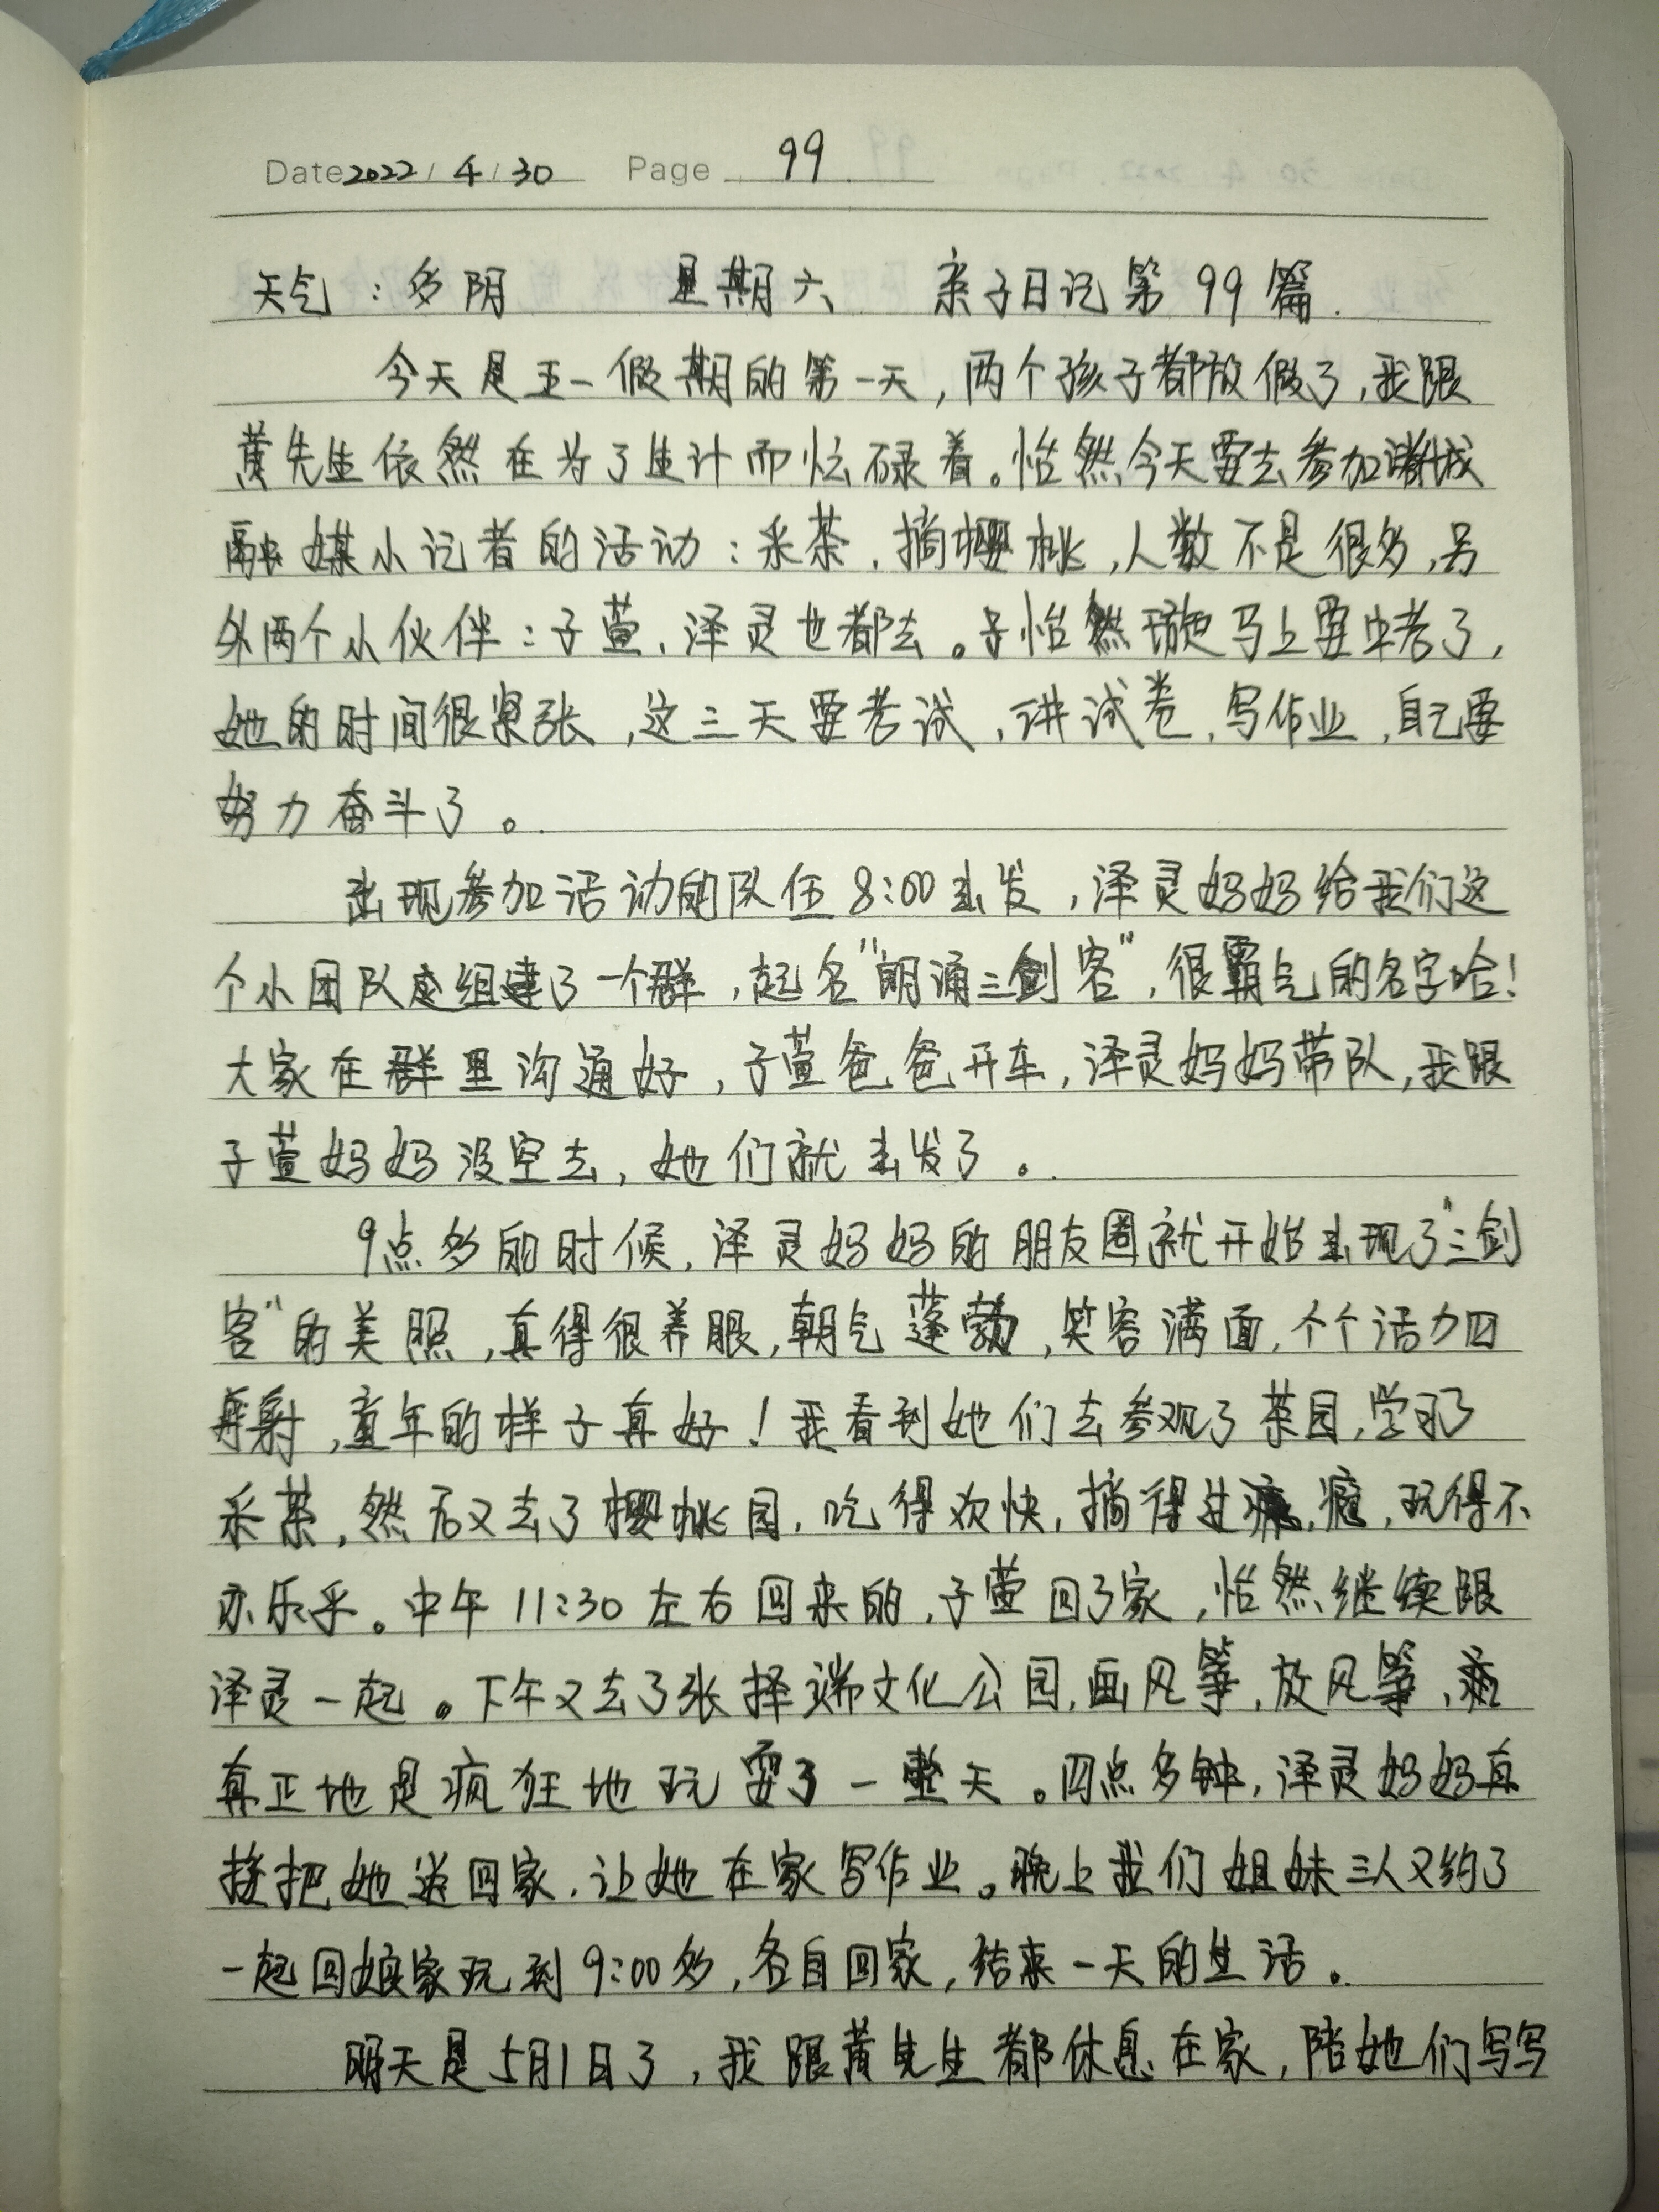 Date 2022/4/30 Page 99
天气：多阴 星期六 亲子日记第99篇.
今天是五一假期的第一天,两个孩子都放假了,我跟
黄先生依然在为了生计而忙碌着。怡然今天要去参加诸城
融媒小记者的活动：采茶、摘樱桃,人数不是很多,另
外两个小伙伴：子萱、泽灵也都去。 怡然 马上要中考了,
她的时间很紧张,这三天要考试,讲试卷,写作业,自己要
努力奋斗了。
出现参加活动的队伍8:00出发,泽灵妈妈给我们这
个小团队 组建了一个群,起名“明涌三剑客”,很霸气的名字哈!
大家在群里沟通好,子萱爸爸开车,泽灵妈妈带队,我跟
子萱妈妈没空去,她们就出发了。
9点多的时候,泽灵妈妈的朋友圈就开始出现了“三剑
客”的美照,真得很养眼,朝气蓬勃,笑容满面,个个活力四
射,童年的样子真好!我看到她们去参观了茶园,学习了
采茶,然后又去了樱桃园,吃得欢快,摘得过瘾,玩得不
亦乐乎。中午11:30左右回来的,子萱回了家,怡然继续跟
泽灵一起。下午又去了张择端文化公园,画风筝,放风筝,
真正地是疯狂地玩耍了一整天。四点多钟,泽灵妈妈直
接把她送回家,让她在家写作业。晚上我们姐妹三人又约了
一起回娘家玩到9:00多,各自回家,结束一天的生活。
明天是5月1日了,我跟黄先生都休息在家,陪她们写写